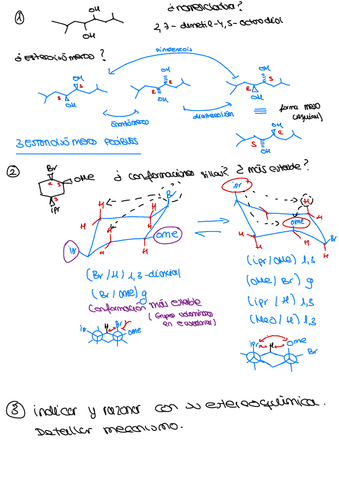 ① ¿nomenclatura?
OH
OH
2,7-dimetil-4,5-octanodiol
¿estereoisómeros?
OH OH OH
S R R S
OH OH OH
forma meso
(aquiral)
OH
S R
OH
enantiómeros
diasteroisómeros
3 ESTEREOISÓMEROS POSIBLES
② Br
OMe
iPr
¿conformaciones sillas? ¿más estable?
Br iPr H
H H H H
OMe OMe
iPr Br
(Br/H) 1,3-diaxial (iPr/OMe) 1,3
(Br/OMe) g (OMe/Br) g
conformación más estable (iPr/H) 1,3
(Grupos voluminosos (MeO/H) 1,3
en ecuatorial)
iPr H Br OMe
iPr H OMe Br
③ indicar y razonar con su estereoquímica.
Detallar mecanismo.